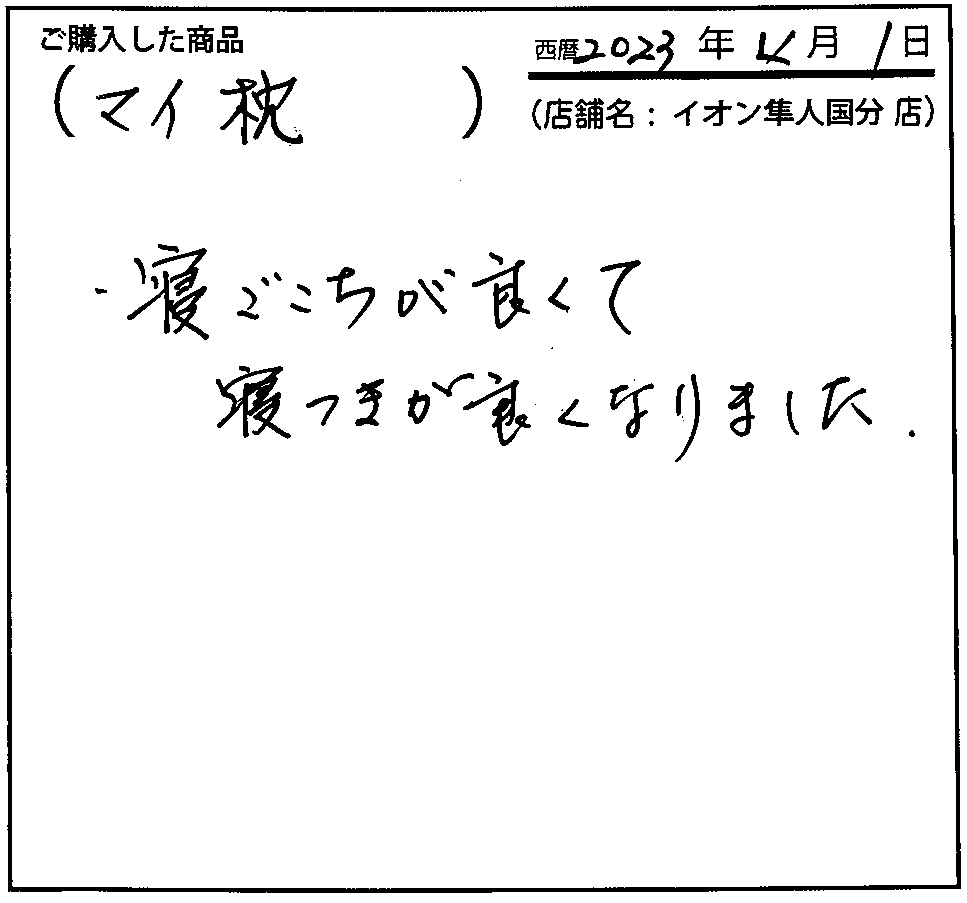 ご購入した商品
西暦2023年4月1日
(マイ枕)
(店舗名：イオン隼人国分店)
・寝ごこちが良くて
寝つきが良くなりました.